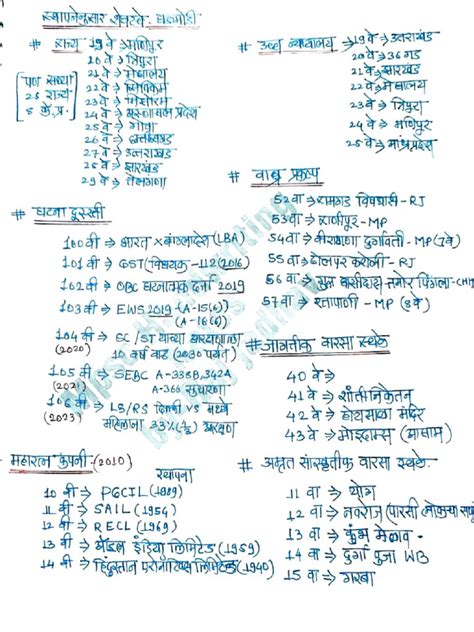 स्थापनेनुसार शेवटचे घटनोडी
# राज्य 19 वे → मणिपूर
20 वे → त्रिपुरा
21 वे → मेघालय
22 वे → सिक्किम
23 वे → मिझोरम
24 वे → अरुणाचल प्रदेश
25 वे → गोवा
26 वे → छत्तीसगड
27 वे → उत्तराखंड
28 वे → झारखंड
29 वे → तेलंगणा
28 राज्य
8 के.प्र.
# उच्च न्यायालय → 19 वे → उत्तराखंड
20 वे → 36 गड
21 वे → झारखंड
22 वे → मेघालय
23 वे → त्रिपुरा
24 वे → मणिपूर
25 वे → आंध्रप्रदेश
# घटना दुरुस्ती
100 वी → भारत × बांग्लादेश (LBA)
101 वी → GST (विधेयक -122 (2016)
102 वी → OBC घटनात्मक दर्जा 2019
103 वी → EWS 2019 - (A-15(6))
(A-16(6))
104 वी → SC/ST यांच्या
(2020) 10 वर्ष वाढ (2030 पर्यंत)
105 वी → SEBC A-338B, 342A
(2021) A-366 सुधारणा
106 वी → LS/RS दिल्ली VS मध्ये
(2023) महिलांना 33% (1/3) आरक्षण
# वाघ्र प्रकल्प
52 वा → रामगड विषधारी - RJ
53 वा → राणीपूर - MP
54 वा → वीरांगणा दुर्गावती - MP (7 वे)
55 वा → ढोलपूर करौली - RJ
56 वा → गुरू घासीदास तमोर पिंगला - CH
57 वा → रतापाणी - MP (8 वे)
# जागतीक वारसा स्थळे
40 वे →
41 वे → शांतीनिकेतन
42 वे → होयसाळा मंदिर
43 वे → मोइदाम्स (आसाम)
महारत्न कंपनी - (2010)
स्थापना
10 वी → PGCIL (1989)
11 वी → SAIL (1954)
12 वी → RECL (1969)
13 वी → ऑईल इंडिया लिमिटेड (1959)
14 वी → हिंदुस्तान एरोनॉटिक्स लिमिटेड (1940)
# अमृत सांस्कृतीक वारसा स्थळे.
11 वा → योग
12 वा → नवरोज (पारसी
13 वा → कुंभ मेळाव
14 वा → दुर्गा पुजा WB
15 वा → गरबा